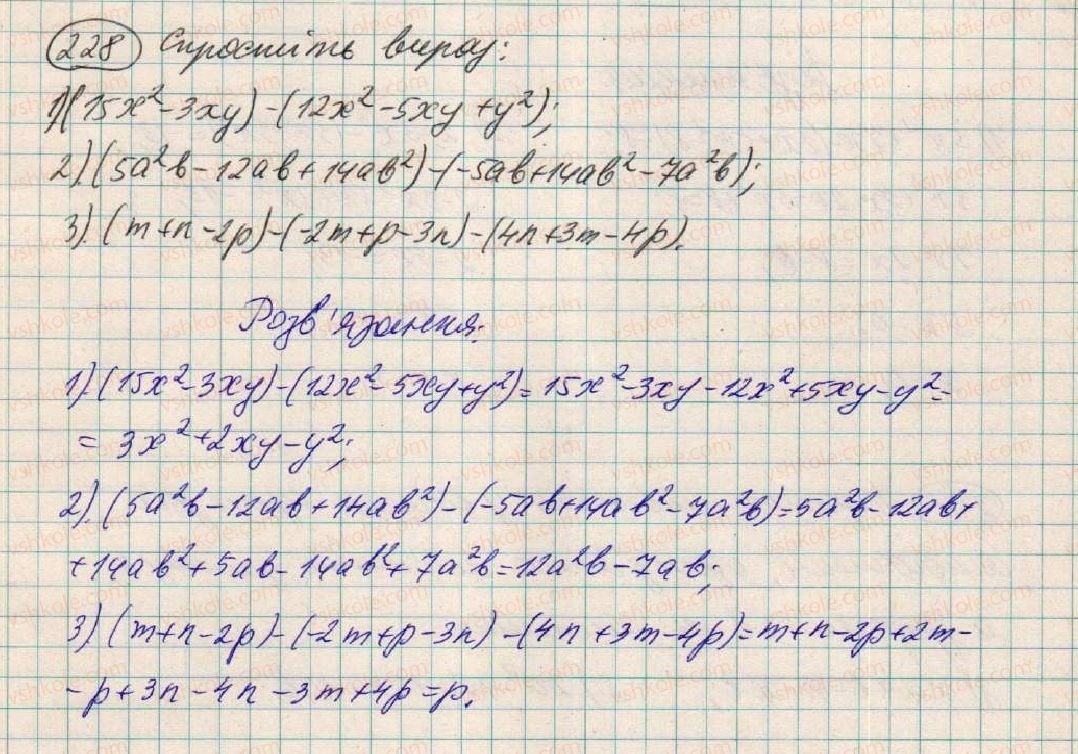 228 Спростіть вираз:
1)(15x²-3xy)-(12x²-5xy+y²);
2).(5a²b-12ab+14ab²)-(-5ab+14ab²-7a²b);
3).(m+n-2p)-(-2m+p-3n)-(4n+3m-4p).
Розв'язання:
1).(15x²-3xy)-(12x²-5xy+y²)=15x²-3xy-12x²+5xy-y²=
= 3x²+2xy-y²;
2).(5a²b-12ab+14ab²)-(-5ab+14ab²-7a²b)=5a²b-12ab+
+14ab²+5ab-14ab²+7a²b=12a²b-7ab;
3)(m+n-2p)-(-2m+p-3n)-(4n+3m-4p)=m+n-2p+2m-
-p+3n-4n-3m+4p=p.